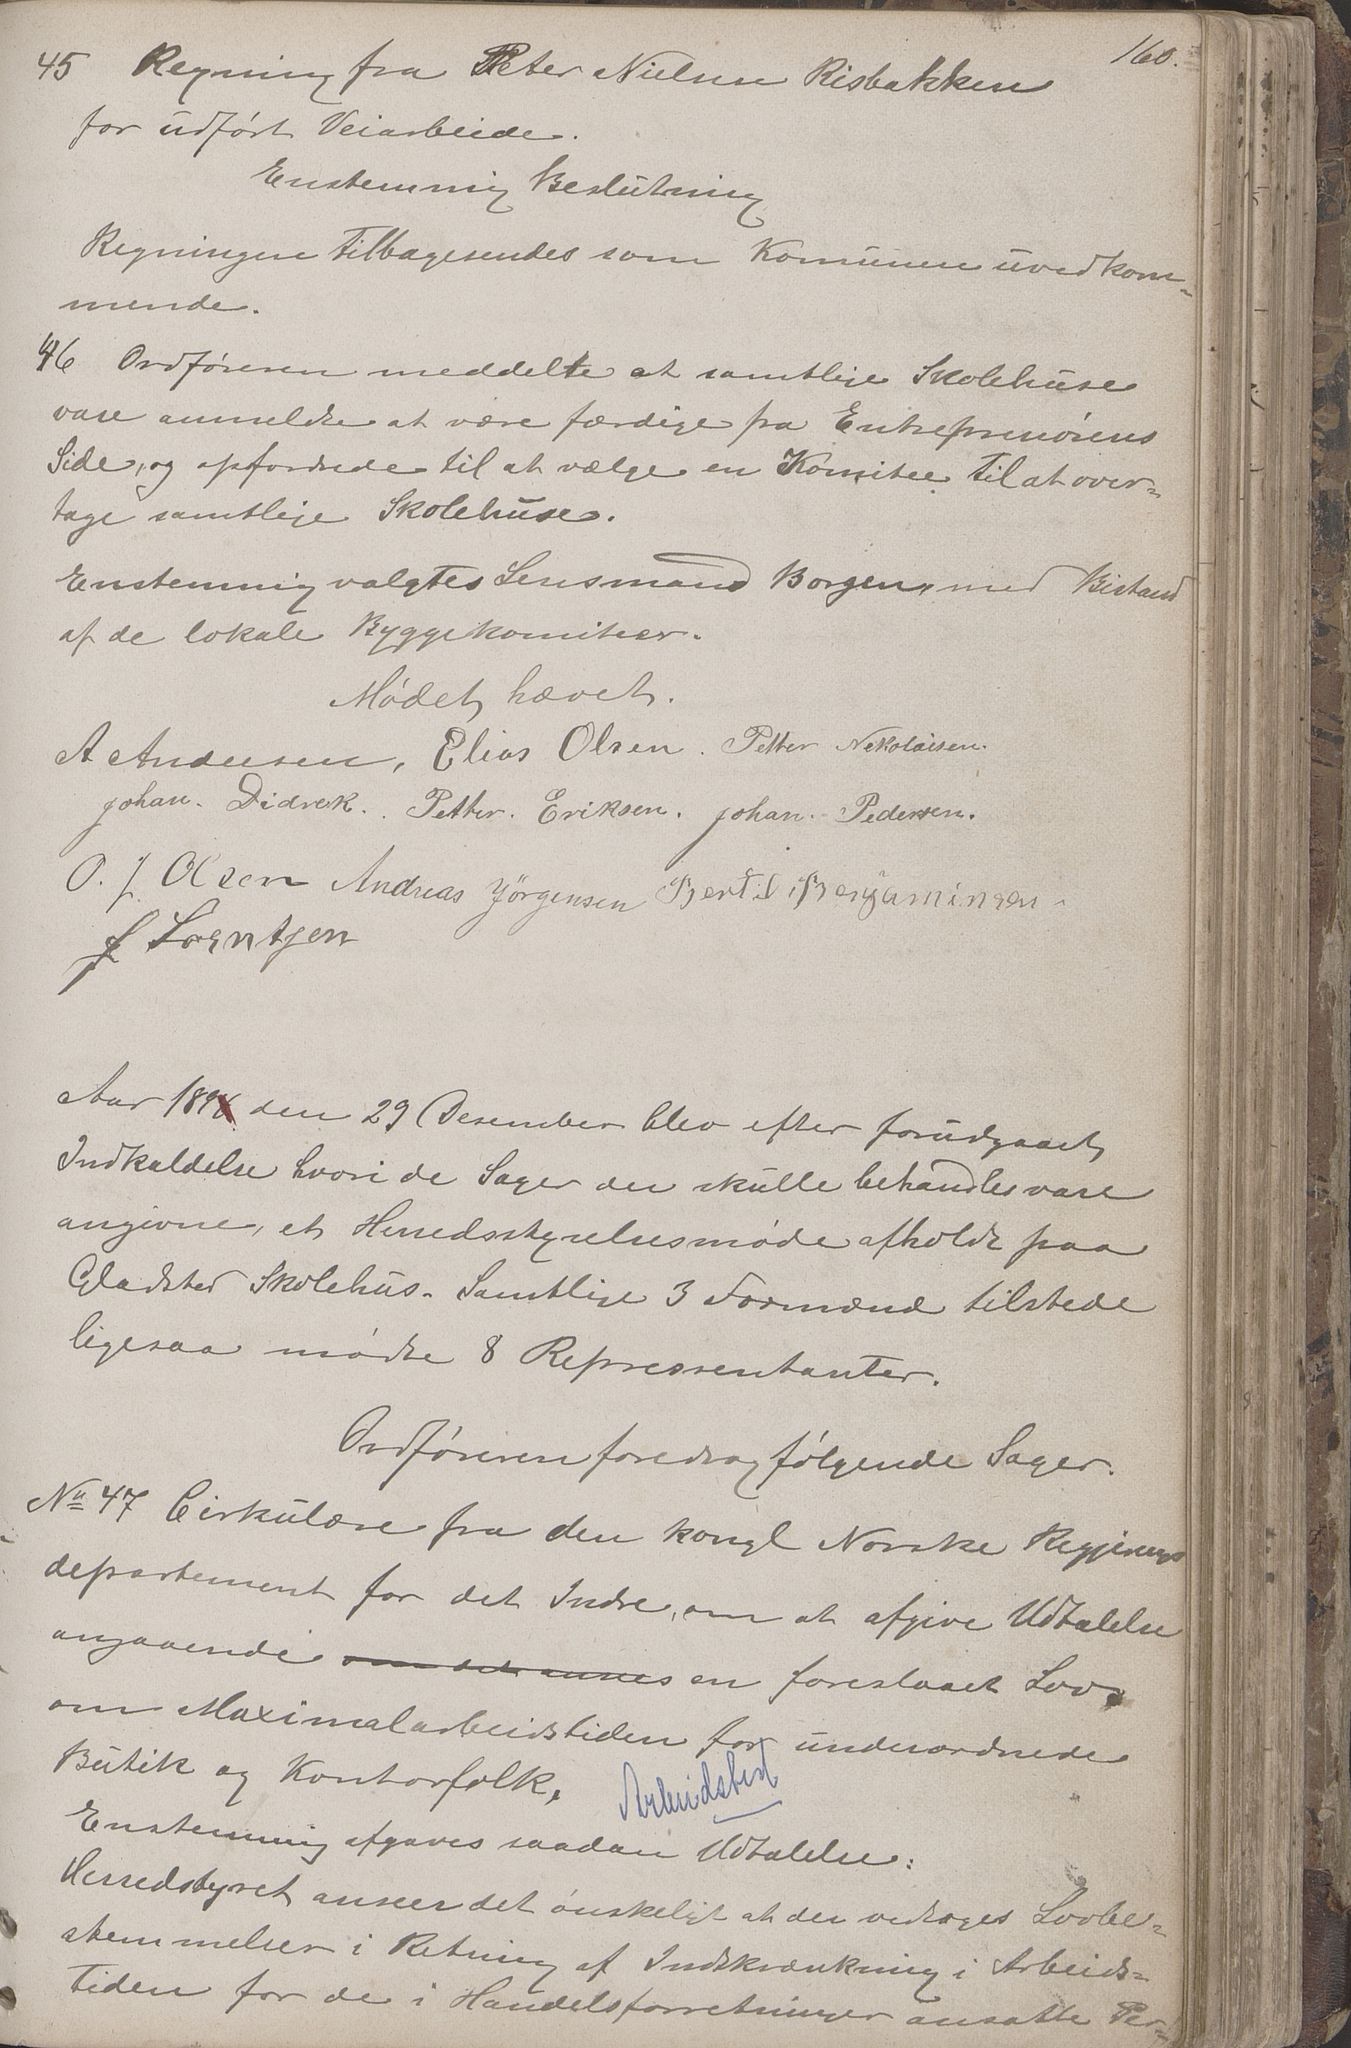 160.
45 Regning fra Peter Nielsen Risbakken
for udført Veiarbeide.
Enstemmig Beslutning
Regningen tilbagesendes som Komunen uvedkom-
mende.
46 Ordføreren meddelte at samtlige Skolehuse
vare anmeldte at være færdige fra Entreprenørens
Side, og opfordrede til at vælge en Komitee til at over-
tage samtlige Skolehuse.
Enstemmig valgtes Lensmand Borgen, med Bistand
af de lokale Byggekomiteer.
Mødet hævet.
A Andersen, Elias Olsen. Petter Nekolaisen.
Johan. Didrek. Petter. Eriksen. Johan. Pedersen.
O. J. Olsen Andreas Jørgensen Bertel Benjaminsen
J Lorentzen
Aar 189 den 29 Desember blev efter forudgaaet
Indkaldelse hvori de Sager der skulle behandles vare
angivne, et Herredsstyrelsesmøde afholdt paa
Gladstad Skolehus. Samtlige 3 Formænd tilstede
ligesaa mødte 8 Repressentanter.
Ordføreren foredrog følgende Sager.
No 47 Cirkulære fra den kongl Norske Regjerings
departement for det Indre, om at afgive Udtalelse
angaaende en foreslaaet Lov
om Maximalarbeidstiden for underordnede
Butik og Kontorfolk.
Arbeidstid
Enstemmig afgaves saadan Udtalelse:
Herredstyret anseer det ønskeligt at der vedtages Lovbe-
stemmelser i Retning af Indskrænkning i Arbeids-
tiden for de i Handelsforretninger ansatte Per-